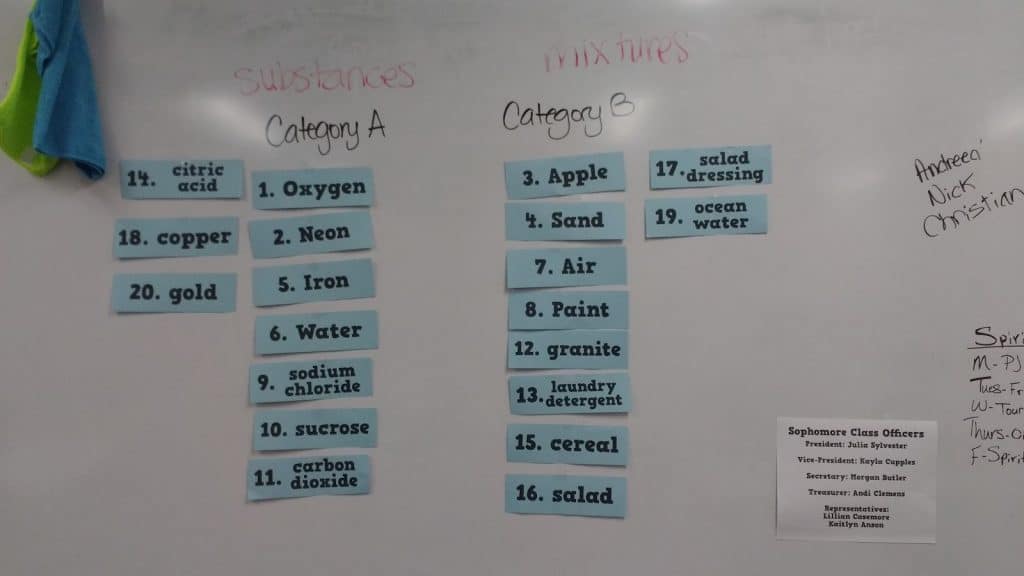 substances
Category A
14. citric
acid
18. copper
20. gold
1. Oxygen
2. Neon
5. Iron
6. Water
9. sodium
chloride
10. sucrose
11. carbon
dioxide
mixtures
Category B
3. Apple
4. Sand
7. Air
8. Paint
12. granite
13. laundry
detergent
15. cereal
16. salad
17. salad
dressing
19. ocean
water
Nick
Christian
M-PJ
Tues-Fr
W-Tour
Thurs-
F-Spirit
Sophomore Class Officers
President: Julia Sylvester
Vice-President: Kayla Cupples
Secretary: Morgan Butler
Treasurer: Andi Clemens
Representatives:
Lillian Casemore
Kaitlyn Anson